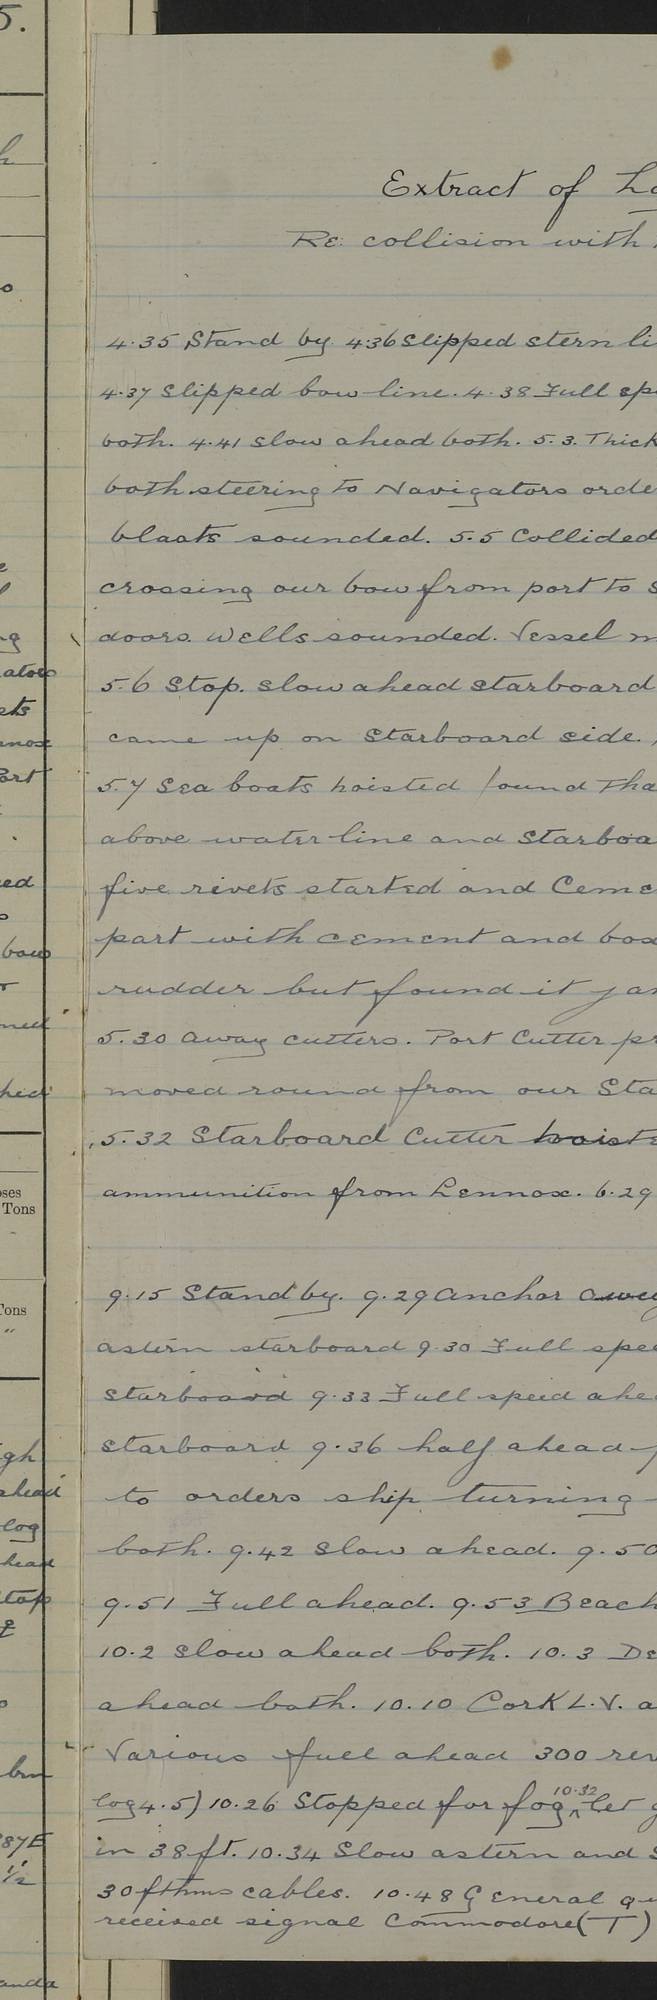 5.
Extract of Lo
Re: collision with
4.35 Stand by 4.36 Slipped stern li
4.37 Slipped bow line. 4.38 Full spe
both. 4.41 slow ahead both. 5.3. Thick
both steering to Navigators orde
blasts sounded. 5.5 Collided
crossing our bow from port to s
doors. Wells sounded. Vessel m
5.6 Stop. slow ahead starboard
came up on Starboard side.
5.7 Sea boats hoisted found Tha
above water line and Starboa
five rivets started and Ceme
part with cement and box
rudder but found it jam
5.30 away cutters. Port Cutter pr
moved round from our Sta
5.32 Starboard Cutter hoiste
ammunition from Lennox. 6.29
9.15 Stand by. 9.29 anchor away
astern starboard 9.30 Full spee
starboard 9.33 Full speed ahea
starboard 9.36 half ahead
to orders ship turning
both. 9.42 Slow ahead. 9.50
9.51 Full ahead. 9.53 Beach
10.2 slow ahead both. 10.3 De
ahead both. 10.10 Cork L.V. a
Various full ahead 300 rev
log 4.5) 10.26 Stopped for fog 10.32 let g
in 38 ft. 10.34 Slow astern and S
30 fthms cables. 10.48 General qu
received signal Commodore (T)
ng
ators
ets
nnox
Port
ed
bow
ned
hed
oses
Tons
Tons
"
gh
ahead
log
head
stop
brn
87E
½
anda